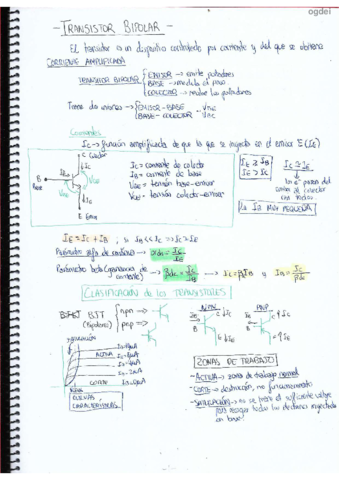 ogdel
-TRANSISTOR BIPOLAR-
El transistor es un dispositivo controlado por corriente y del que se obtiene
CORRIENTE AMPLIFICADA
TRANSISTOR BIPOLAR
EMISOR → emite portadores
BASE → modula el paso
COLECTOR → recibe los portadores
EMISOR-BASE
BASE-COLECTOR
Corrientes
Ic → función amplificada de que lo que se inyecta en el emisor E (IE)
C Colector
B
Base
E Emisor
Ic = corriente de colector
IB = corriente de base
VBE = tensión base-emisor
= tensión colector-emisor
La IB MUY PEQUEÑA
IE = Ic + IB ; si IB << Ic => Ic ≈ IE
Parámetro alfa de continua → αdc = Ic/IE
Parámetro beta (ganancia de corriente) → βdc = Ic/IB → Ic = β IB y IB = Ic/βdc
CLASIFICACIÓN de los TRANSISTORES
BJT
(Bipolares)
npn →
pnp →
NPN
PNP
SATURACIÓN
ACTIVA
CORTE
CURVAS
CARACTERÍSTICAS
ZONAS DE TRABAJO
-ACTIVA → zona de trabajo normal
-CORTE → destrucción, no funcionamiento
-SATURACIÓN → no se tiene el suficiente voltaje
para recoger todos los electrones inyectados
en base